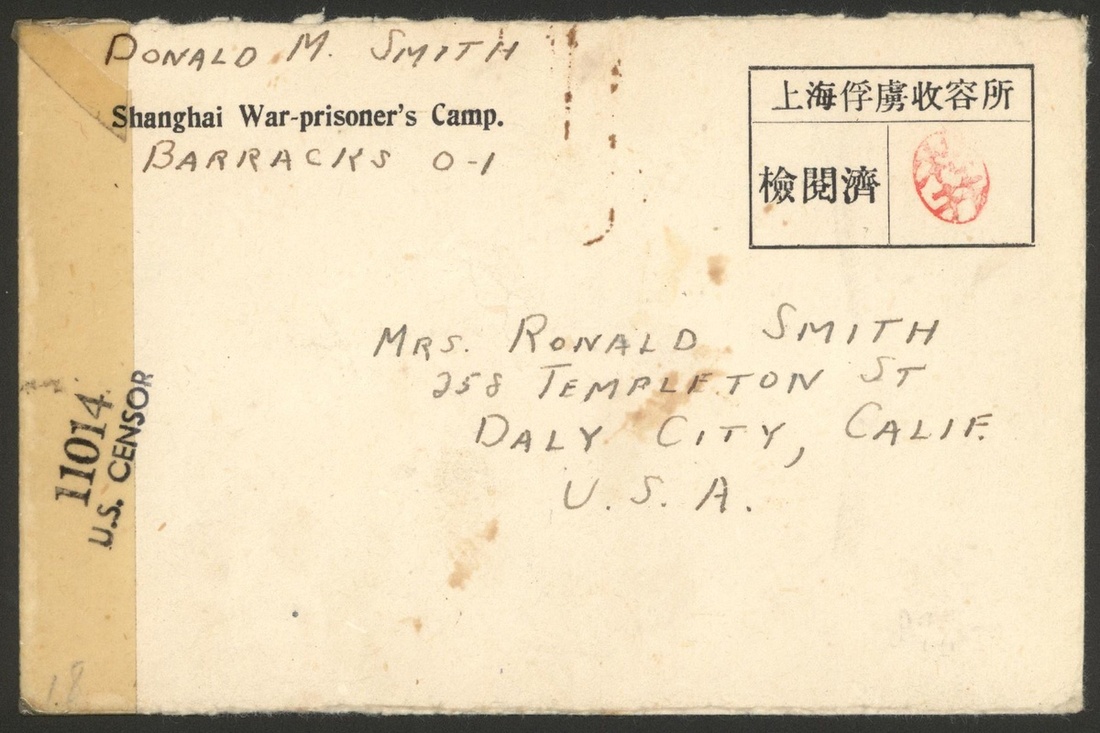 DONALD M. SMITH
Shanghai War-prisoner's Camp.
BARRACKS O-1
上海俘虜收容所
檢閱濟
MRS. RONALD SMITH
258 TEMPLETON ST
DALY CITY, CALIF.
U.S.A.
11014
U.S. CENSOR
18